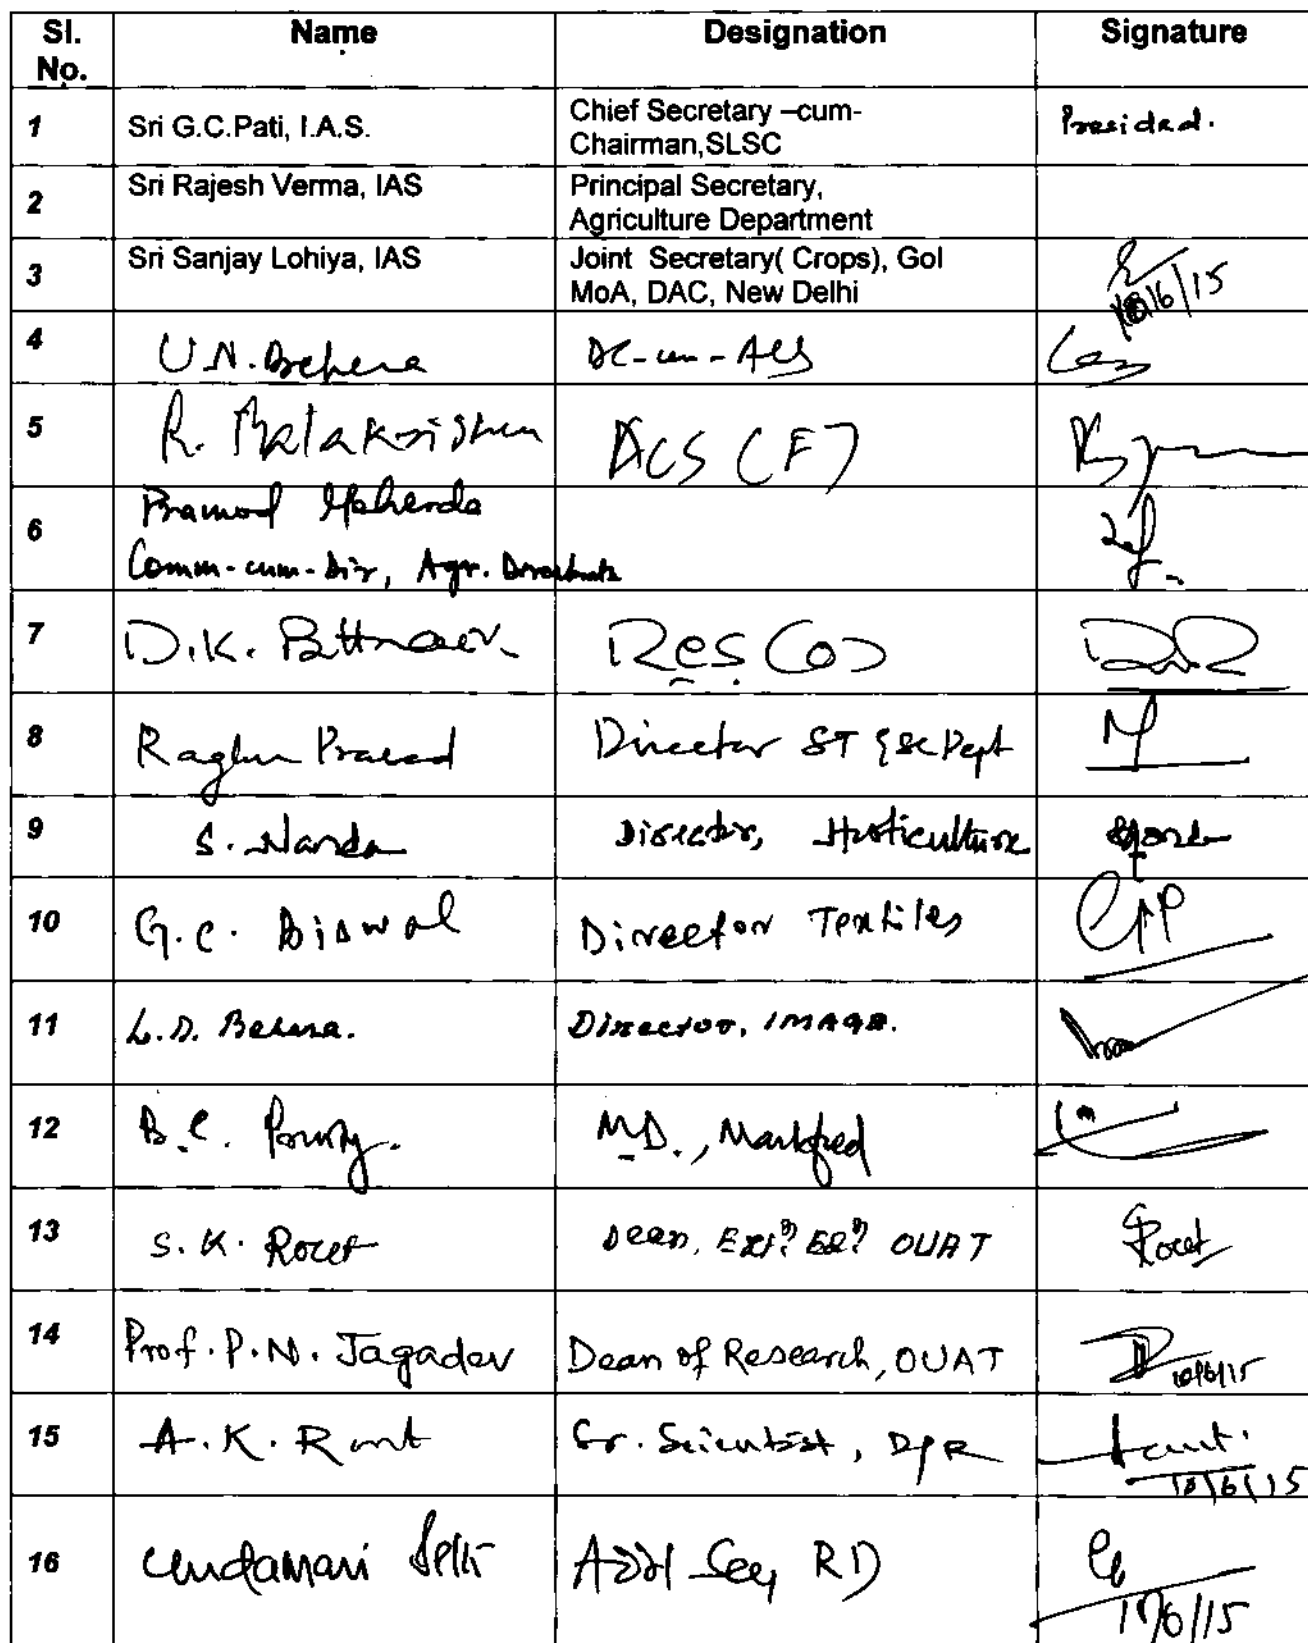 Sl. No. Name Designation Signature
1 Sri G.C.Pati, I.A.S. Chief Secretary –cum- Presided.
Chairman,SLSC
2 Sri Rajesh Verma, IAS Principal Secretary,
Agriculture Department
3 Sri Sanjay Lohiya, IAS Joint Secretary( Crops), GoI
MoA, DAC, New Delhi
4 U.N. Behera DC-cum-ACS
5 R. Balakrishnan ACS (F)
6 Pramod
Comm-cum-Dir, Agr. Directorate
7 D.K.
8 Raghu Prasad Director ST & SC Dept
9 S. Nanda Director, Horticulture
10 G.C. Biswal Director Textiles
11 L.D. Behera. Director, IMAGE.
12 B.C. M.D., Markfed
13 S.K. Rout Dean, Extn Edn OUAT Rout
14 Prof. P.N. Jagadev Dean of Research, OUAT
10/6/15
15 A.K. Sr. Scientist,
10/6/15
16 Addl Secy RD